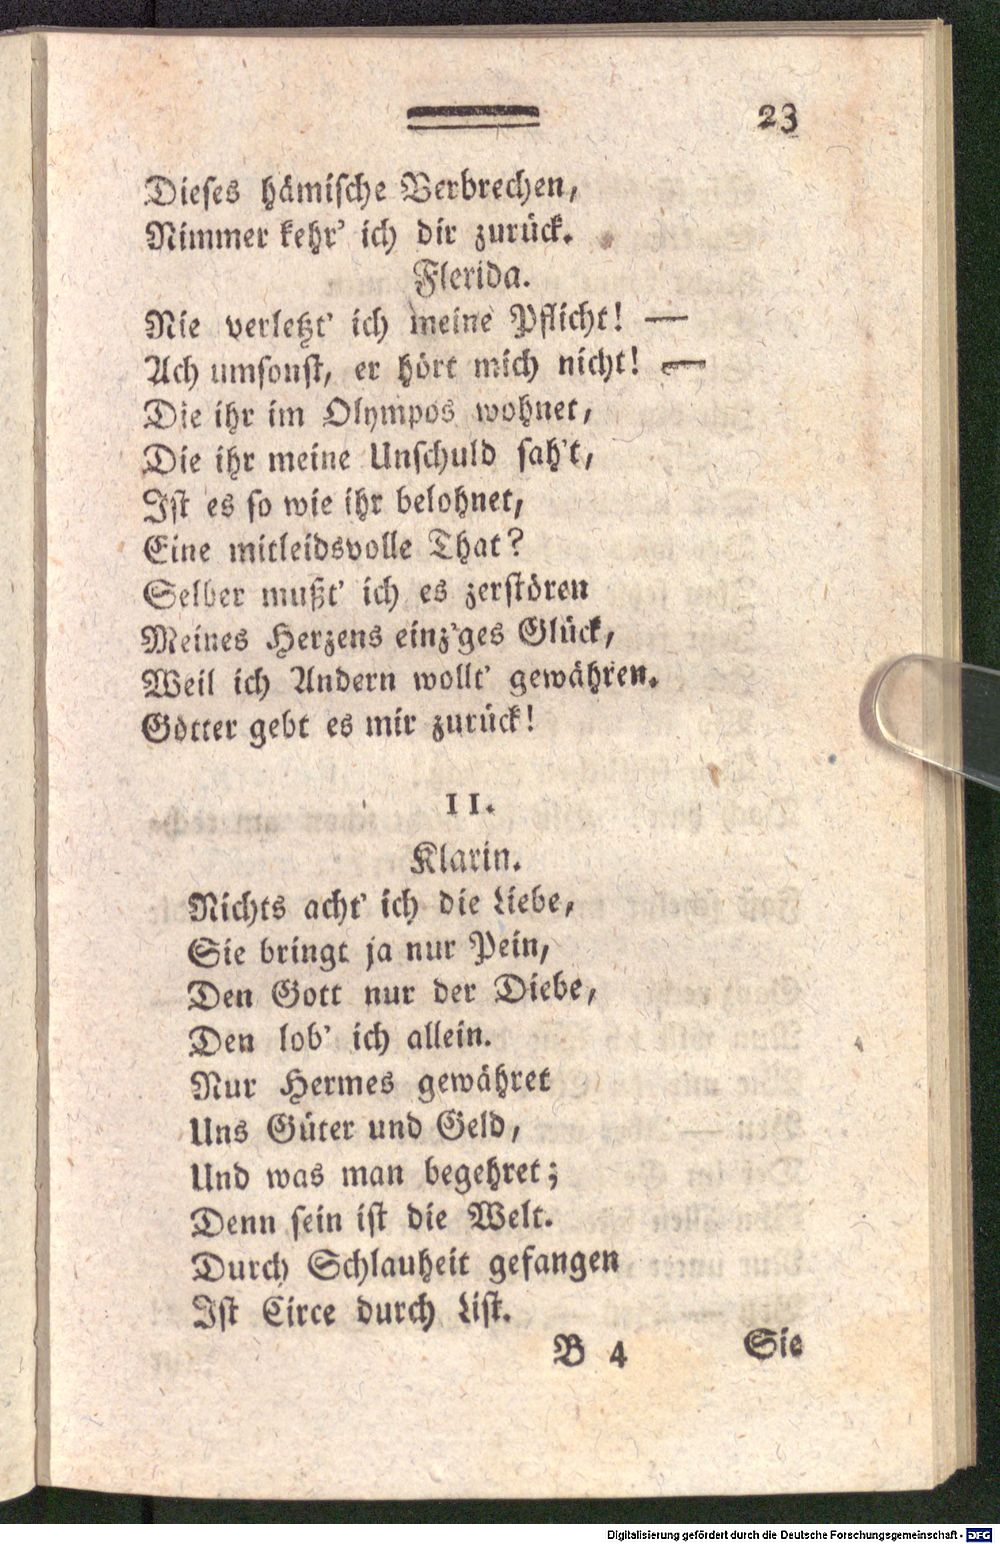 23
Dieses hämische Verbrechen,
Nimmer kehr' ich dir zurück.
Flerida.
Nie verletzt' ich meine Pflicht! —
Ach umsonst, er hört mich nicht! —
Die ihr im Olympos wohnet,
Die ihr meine Unschuld sah't,
Ist es so wie ihr belohnet,
Eine mitleidsvolle That?
Selber mußt' ich es zerstören
Meines Herzens einz'ges Glück,
Weil ich Andern wollt' gewähren.
Götter gebt es mir zurück!
11.
Klarin.
Nichts acht' ich die Liebe,
Sie bringt ja nur Pein,
Den Gott nur der Diebe,
Den lob' ich allein.
Nur Hermes gewähret
Uns Güter und Geld,
Und was man begehret;
Denn sein ist die Welt.
Durch Schlauheit gefangen
Ist Circe durch List.
B 4 Sie
Digitalisierung gefördert durch die Deutsche Forschungsgemeinschaft - DFG